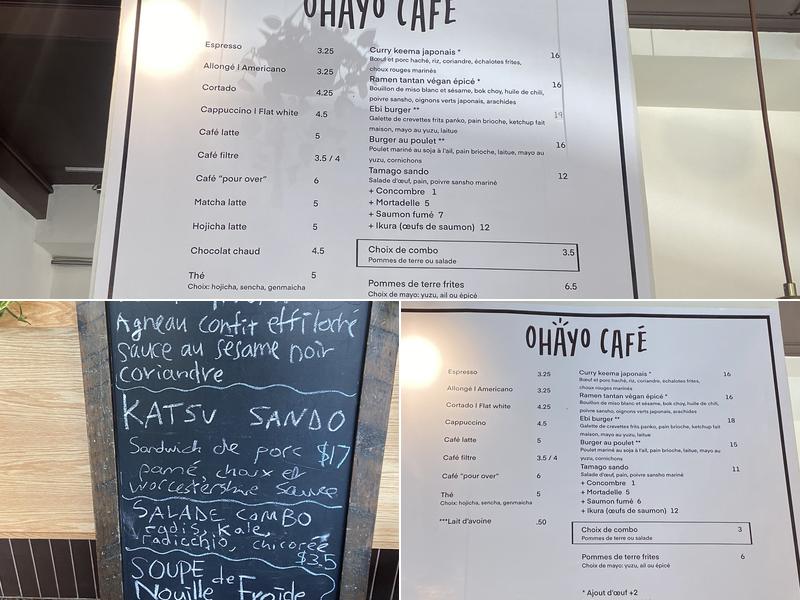 OHAYO CAFÉ
Espresso 3.25
Allongé | Americano 3.25
Cortado 4.25
Cappuccino | Flat white 4.5
Café latte 5
Café filtre 3.5 / 4
Café "pour over" 6
Matcha latte 5
Hojicha latte 5
Chocolat chaud 4.5
Thé 5
Choix: hojicha, sencha, genmaicha
Curry keema japonais * 16
Bœuf et porc haché, riz, coriandre, échalotes frites,
choux rouges marinés
Ramen tantan végan épicé * 16
Bouillon de miso blanc et sésame, bok choy, huile de chili,
poivre sansho, oignons verts japonais, arachides
Ebi burger ** 19
Galette de crevettes frits panko, pain brioche, ketchup fait
maison, mayo au yuzu, laitue
Burger au poulet ** 16
Poulet mariné au soja à l'ail, pain brioche, laitue, mayo au
yuzu, cornichons
Tamago sando 12
Salade d'œuf, pain, poivre sansho mariné
+ Concombre 1
+ Mortadelle 5
+ Saumon fumé 7
+ Ikura (œufs de saumon) 12
Choix de combo 3.5
Pommes de terre ou salade
Pommes de terre frites 6.5
Choix de mayo: yuzu, ail ou épicé
Agneau confit effiloché
sauce au sésame noir
coriandre
KATSU SANDO
Sandwich de porc $17
pané, choux et
Worcestershire sauce
SALADE COMBO
radis, kale,
radicchio, chicorée
$3.5
SOUPE de
Nouille Froide
OHAYO CAFÉ
Espresso 3.25
Allongé | Americano 3.25
Cortado | Flat white 4.25
Cappuccino 4.5
Café latte 5
Café filtre 3.5 / 4
Café "pour over" 6
Thé 5
Choix: hojicha, sencha, genmaicha
***Lait d'avoine .50
Curry keema japonais * 16
Bœuf et porc haché, riz, coriandre, échalotes frites,
choux rouges marinés
Ramen tantan végan épicé * 16
Bouillon de miso blanc et sésame, bok choy, huile de chili,
poivre sansho, oignons verts japonais, arachides
Ebi burger ** 18
Galette de crevettes frits panko, pain brioche, ketchup fait
maison, mayo au yuzu, laitue
Burger au poulet ** 15
Poulet mariné au soja à l'ail, pain brioche, laitue, mayo au
yuzu, cornichons
Tamago sando 11
Salade d'œuf, pain, poivre sansho mariné
+ Concombre 1
+ Mortadelle 5
+ Saumon fumé 6
+ Ikura (œufs de saumon) 12
Choix de combo 3
Pommes de terre ou salade
Pommes de terre frites 6
Choix de mayo: yuzu, ail ou épicé
* Ajout d'œuf +2